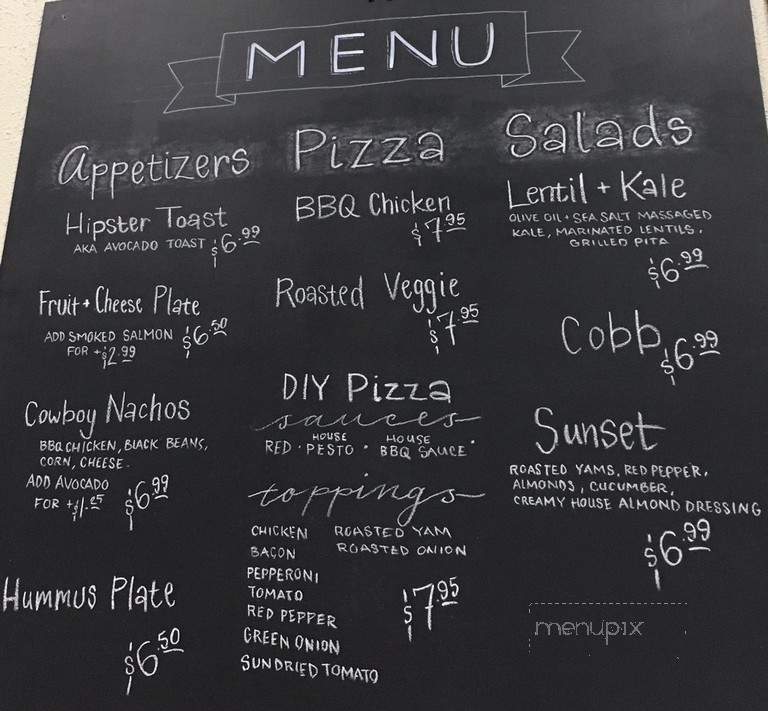 MENU
Appetizers
Hipster Toast
AKA AVOCADO TOAST $6.99
Fruit + Cheese Plate
ADD SMOKED SALMON $6.50
FOR +$2.99
Cowboy Nachos
BBQ CHICKEN, BLACK BEANS,
CORN, CHEESE.
ADD AVOCADO
FOR +$1.25 $6.99
Hummus Plate
$6.50
Pizza
BBQ Chicken
$7.95
Roasted Veggie
$7.95
DIY Pizza
sauces
RED · HOUSE PESTO · HOUSE BBQ SAUCE
toppings
CHICKEN ROASTED YAM
BACON ROASTED ONION
PEPPERONI
TOMATO
RED PEPPER
GREEN ONION
SUNDRIED TOMATO
$7.95
Salads
Lentil + Kale
OLIVE OIL + SEA SALT MASSAGED
KALE, MARINATED LENTILS,
GRILLED PITA
$6.99
Cobb $6.99
Sunset
ROASTED YAMS, RED PEPPER,
ALMONDS, CUCUMBER,
CREAMY HOUSE ALMOND DRESSING
$6.99
menupix